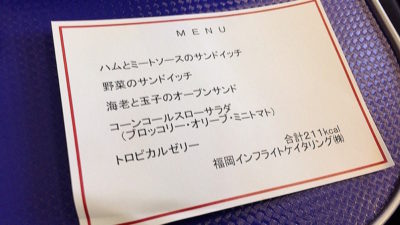 MENU
ハムとミートソースのサンドイッチ
野菜のサンドイッチ
海老と玉子のオープンサンド
コーンコールスローサラダ
（ブロッコリー・オリーブ・ミニトマト）
トロピカルゼリー
合計211kcal
福岡インフライトケイタリング㈱